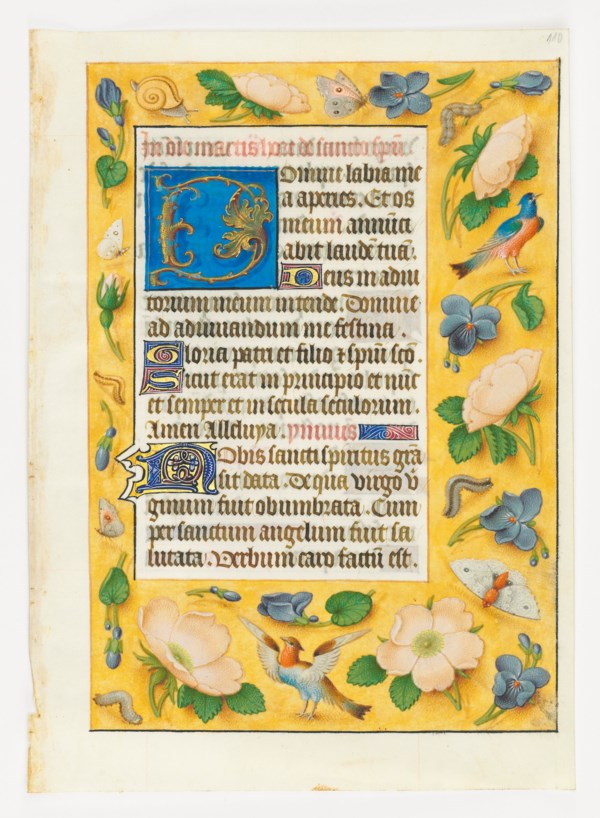 In dn̄o mactis hore de sancto spū
Domine labia me
a aperies. Et os
meum annūci
abit laudē tuā.
Deus in adiu
torium meum intende. Domine
ad adiuuandum me festina.
Gloria patri et filio ⁊ spiūi scō.
Sicut erat in principio et nūc
et semper et in secula seculorum.
Amen Alleluya. ymnus
Nobis sancti spiritus grā
sit data. De qua virgo v̄
ginum fuit obumbrata. Cum
per sanctum angelum fuit sa
lutata. Verbum caro factū est.